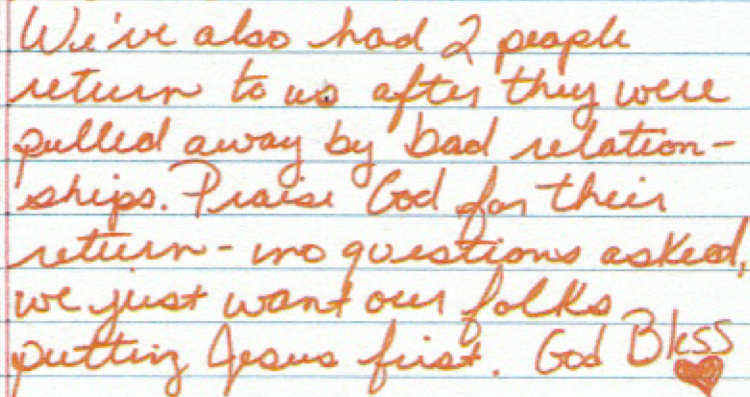 We've also had 2 people
return to us after they were
pulled away by bad relation-
ships. Praise God for their
return - no questions asked,
we just want our folks
putting Jesus first. God Bless